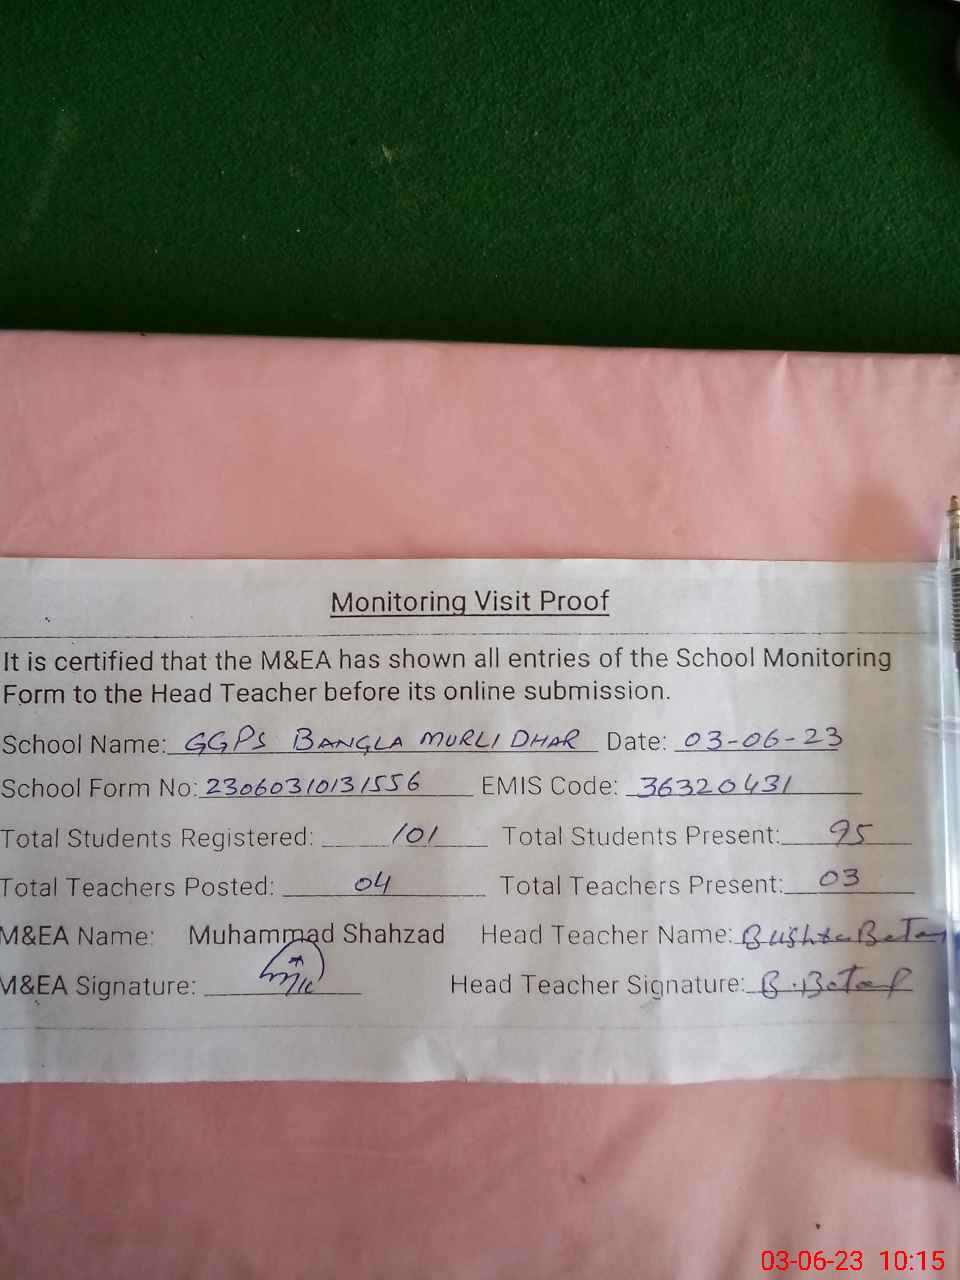 Monitoring Visit Proof
It is certified that the M&EA has shown all entries of the School Monitoring
Form to the Head Teacher before its online submission.
School Name: GGPS BANGLA MURLI DHAR Date: 03-06-23
School Form No: 23060310131556 EMIS Code: 36320431
Total Students Registered: 101 Total Students Present: 95
Total Teachers Posted: 04 Total Teachers Present: 03
M&EA Name: Muhammad Shahzad Head Teacher Name:
M&EA Signature: Head Teacher Signature:
03-06-23 10:15